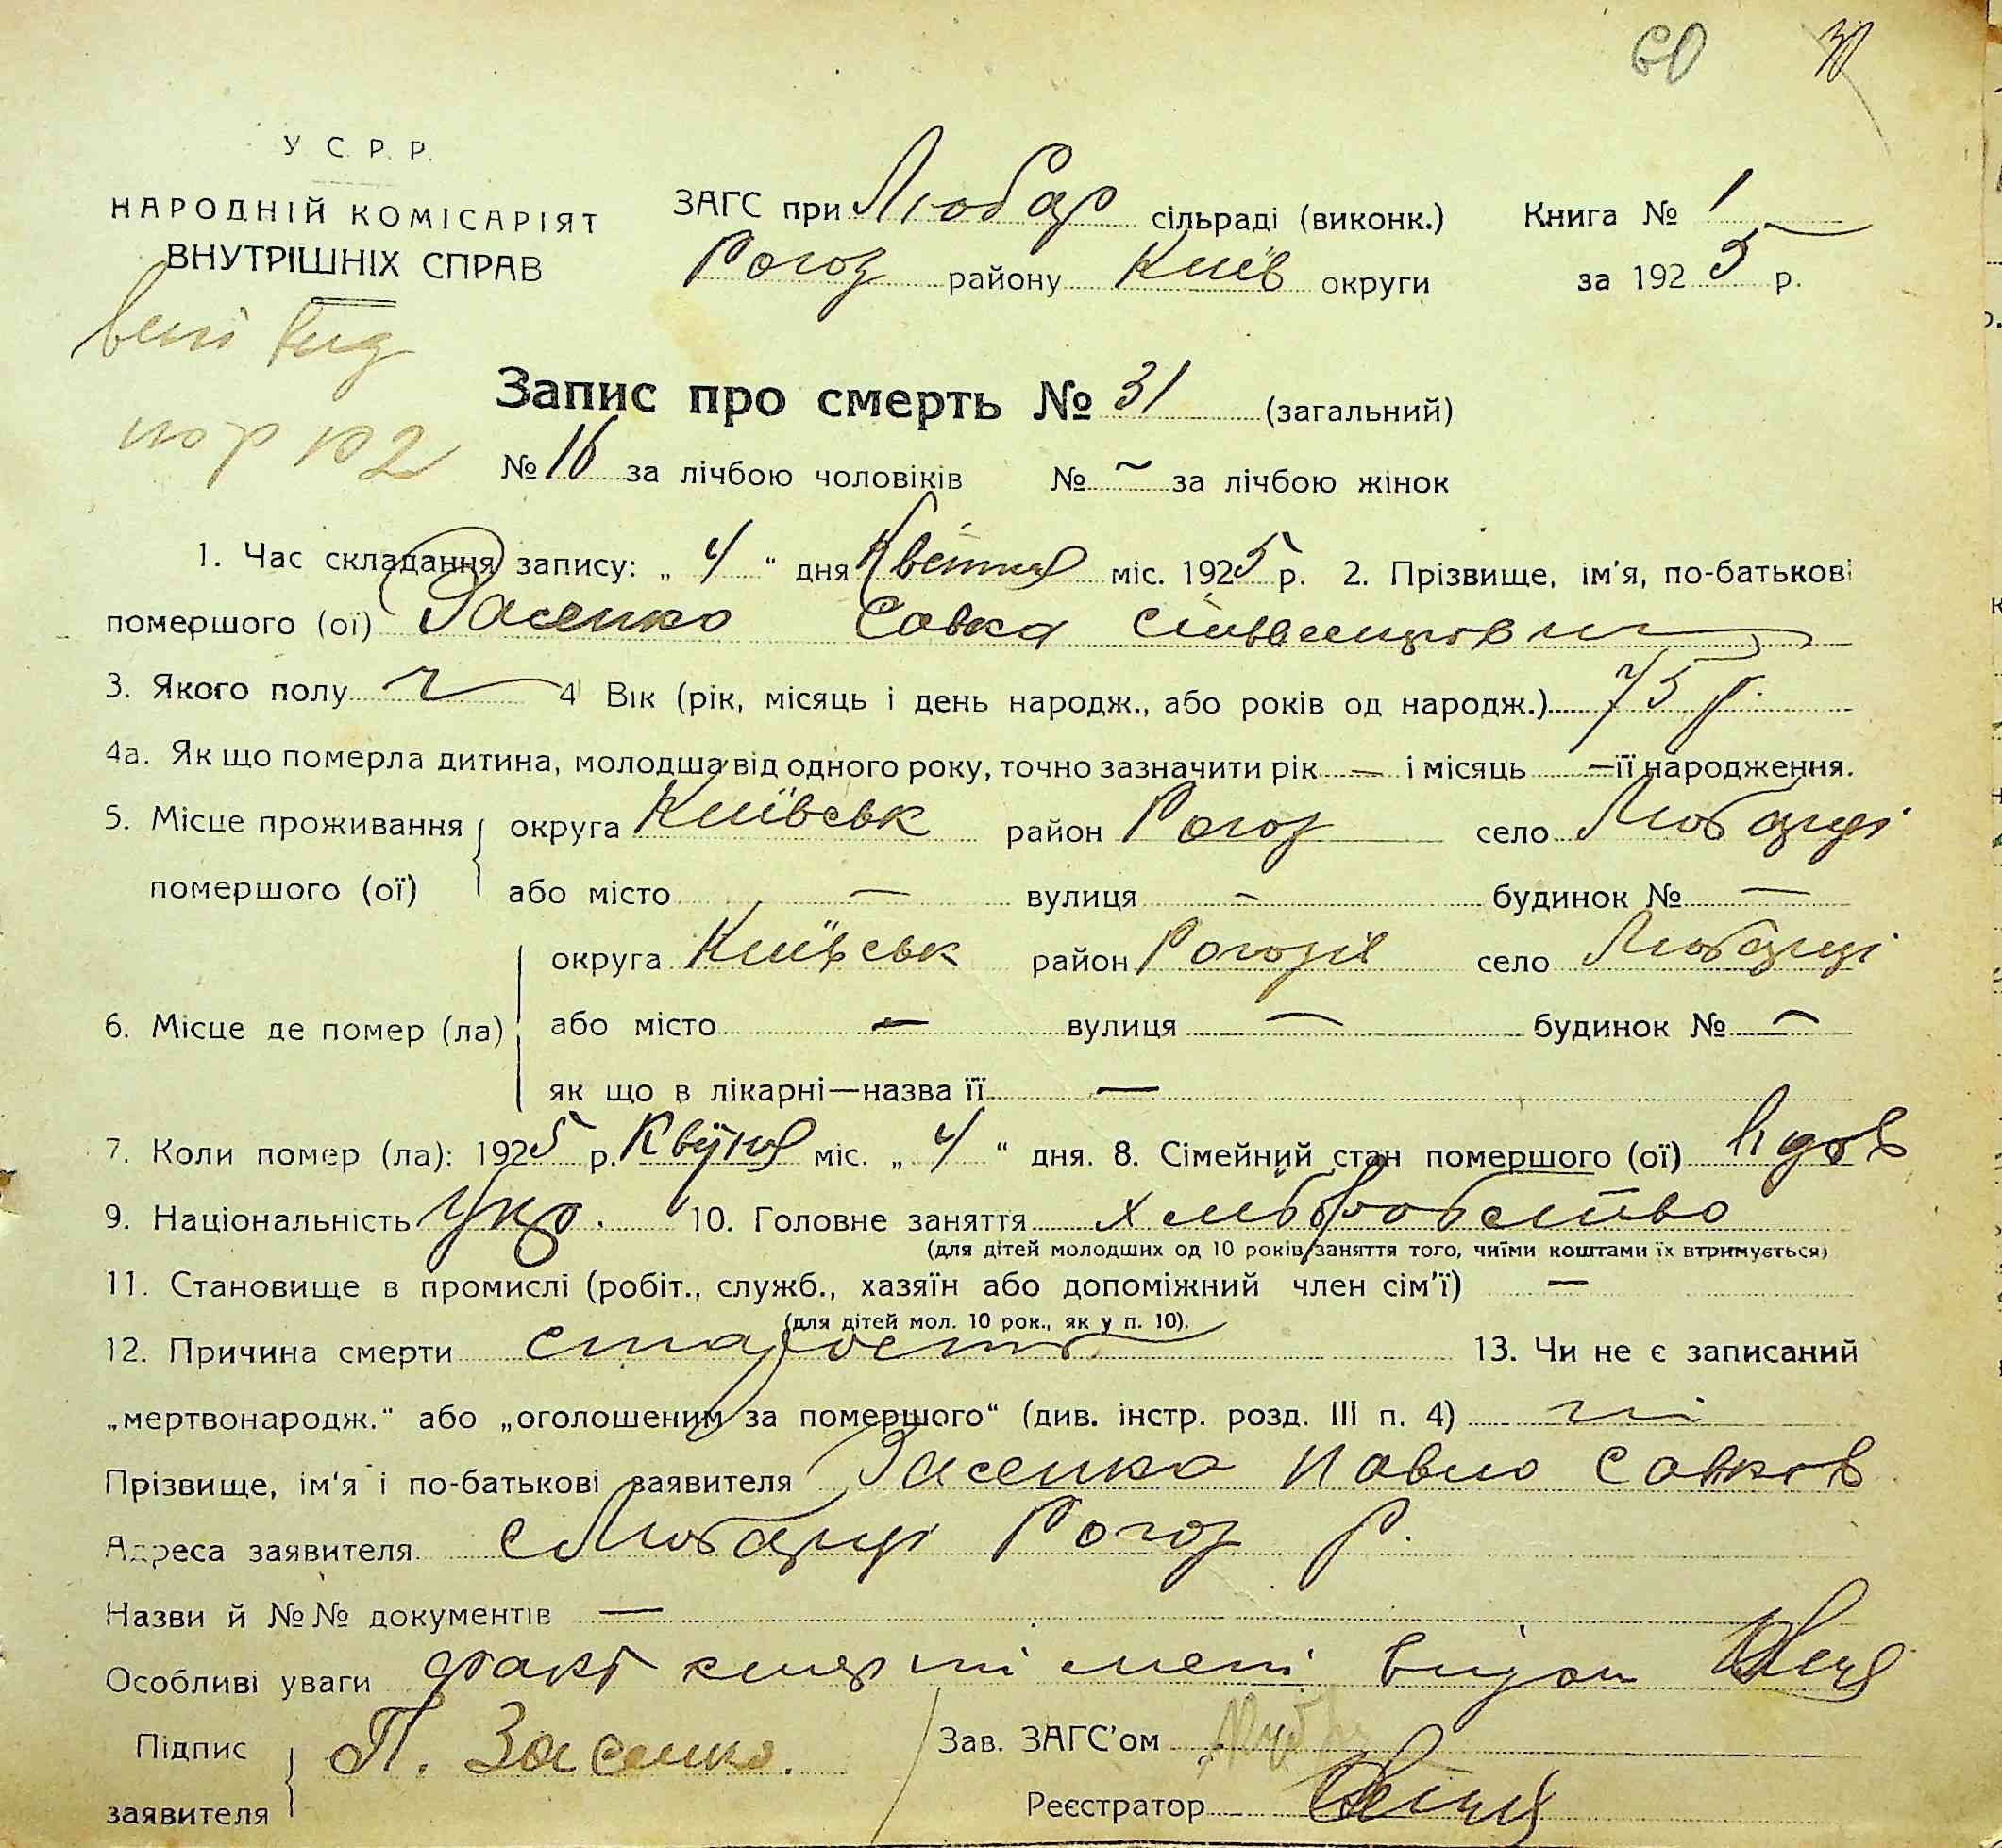 60
У С. Р. Р.
НАРОДНІЙ КОМІСАРІЯТ
ВНУТРІШНІХ СПРАВ
ЗАГС при Любар сільраді (виконк.) Книга № 1
Рогоз району Київ округи за 1925 р.
Запис про смерть № 31 (загальний)
№ 16 за лічбою чоловіків № ~ за лічбою жінок
1. Час складання запису: „ 4 “ дня Квітня міс. 1925 р. 2. Прізвище, ім'я, по-батькові
помершого (ої) Засенко Савка
3. Якого полу ч 4 Вік (рік, місяць і день народж., або років од народж.) 75 р.
4а. Як що померла дитина, молодша від одного року, точно зазначити рік — і місяць — її народження.
5. Місце проживання округа Київськ район Рогоз село Любарці
помершого (ої) або місто — вулиця — будинок № —
округа Київськ район Рогозів село Любарці
6. Місце де помер (ла) або місто — вулиця — будинок № —
як що в лікарні—назва її —
7. Коли помер (ла): 1925 р. Квітня міс. „ 4 “ дня. 8. Сімейний стан помершого (ої) вдов
9. Національність Укр. 10. Головне заняття хліборобство
(для дітей молодших од 10 років, заняття того, чиїми коштами їх втримується)
11. Становище в промислі (робіт., служб., хазяїн або допоміжний член сім'ї) —
(для дітей мол. 10 рок., як у п. 10).
12. Причина смерти старость 13. Чи не є записаний
„мертвонародж.“ або „оголошеним за помершого“ (див. інстр. розд. III п. 4) ні
Прізвище, ім'я і по-батькові заявителя Засенко Павло Савков
Адреса заявителя с Любарці Рогоз р.
Назви й №№ документів —
Особливі уваги факт смерті мені відом
Підпис заявителя П. Засенко. Зав. ЗАГС'ом
Реєстратор